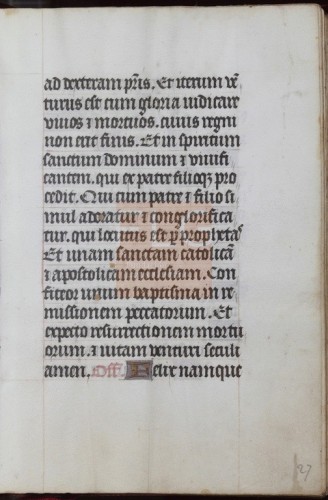 ad dexteram pr̃is. Et iterum vẽ
turus est cum gloria iudicare
viuos ⁊ mortuos. cuius regni
non erit finis. Et in spiritum
sanctum dominum ⁊ viuifi
cantem. qui ex patre filioqꝫ pro
cedit. Qui cum patre ⁊ filio si
mul adoratur ⁊ conglorifica
tur. qui locutus est ꝑ prophetas
Et vnam sanctam catolicã
⁊ apostolicam ecclesiam. Con
fiteor vnum baptisma in re
missionem peccatorum. Et
expecto resurrectionem mortu
orum. ⁊ vitam venturi seculi
amen. Off. Felix namque
27